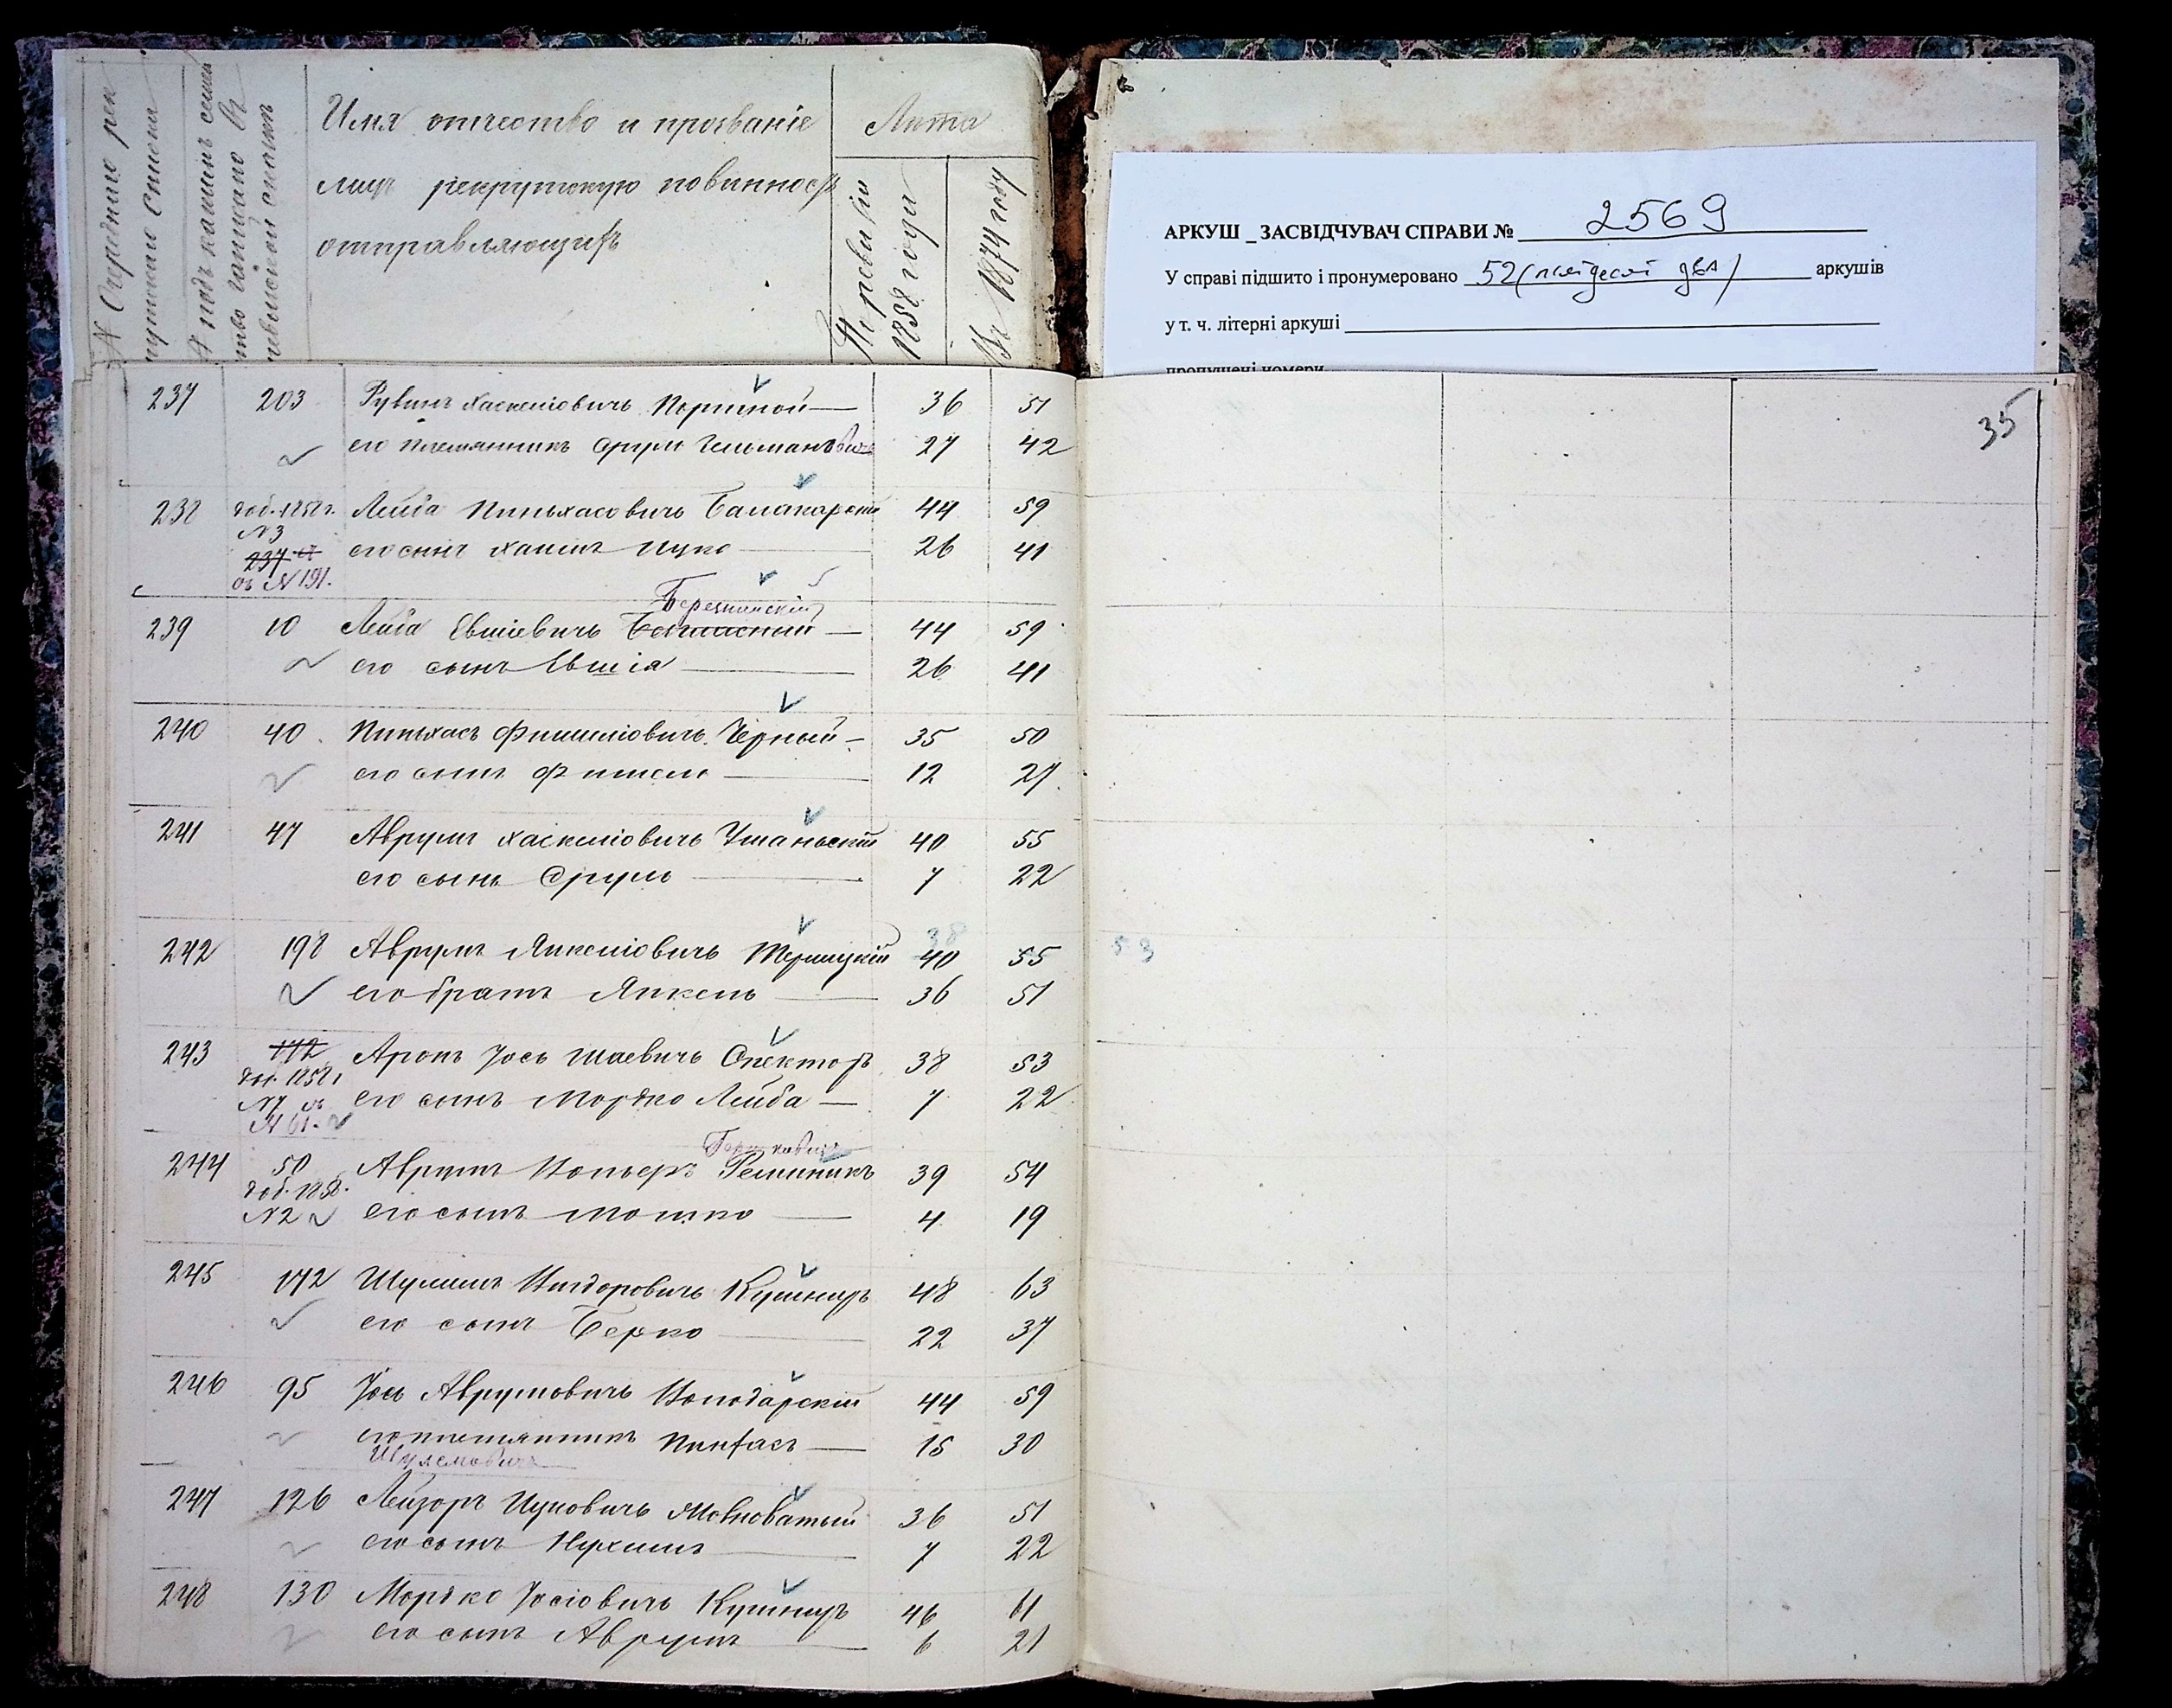 № Очередного рек
рутскаго списка
№ подъ какимъ семей
ство записано въ
ревизской сказкѣ
Имя отчество и прозваніе
лицъ рекрутскую повинность
отправляющихъ
Лѣта
По ревизіи
1858 года
Въ 1874 году
АРКУШ _ ЗАСВІДЧУВАЧ СПРАВИ № 2569
У справі підшито і пронумеровано 52 (пятдесят два) аркушів
у т. ч. літерні аркуші
пропущені номери
35
237 203 Рувинъ Хаскеліовичъ Портной 36 51
его племянникъ Срулъ Гельмановичъ 27 42
238 доб. 1858 г. Лейба Пиньхасовичъ 44 59
№ 3
237 его сынъ Хаимъ Ицко 26 41
съ № 191.
Березинскій
239 10 Лейба Евшіевичъ 44 59
его сынъ Евшія 26 41
240 40 Пиньхасъ Фишеліовичъ Чёрный 35 50
его сынъ Фишель 12 27
241 47 Аврумъ Хаскеліовичъ Уманьскій 40 55
его сынъ Срулъ 7 22
38 53
242 198 Аврумъ Янкеліовичъ 40 55
его братъ Янкель 36 51
243 172 Аронъ Іось Шаевичъ Спекторъ 38 53
доб. 1858 г.
№ 7 съ его сынъ Мордко Лейба 7 22
№ 61.
244 50 Аврумъ 39 54
доб. 1858.
№ 2 его сынъ Мошко 4 19
245 172 Шулимъ Кушниръ 48 63
его сынъ Берко 22 37
246 95 Іось Аврумовичъ Володарскій 44 59
его племянникъ Пинхасъ 15 30
Шулемовичъ
247 126 Лейзоръ Ицковичъ Мовноватый 36 51
его сынъ Нухимъ 7 22
248 130 Мордко Іосіовичъ Кушниръ 46 61
его сынъ Аврумъ 6 21